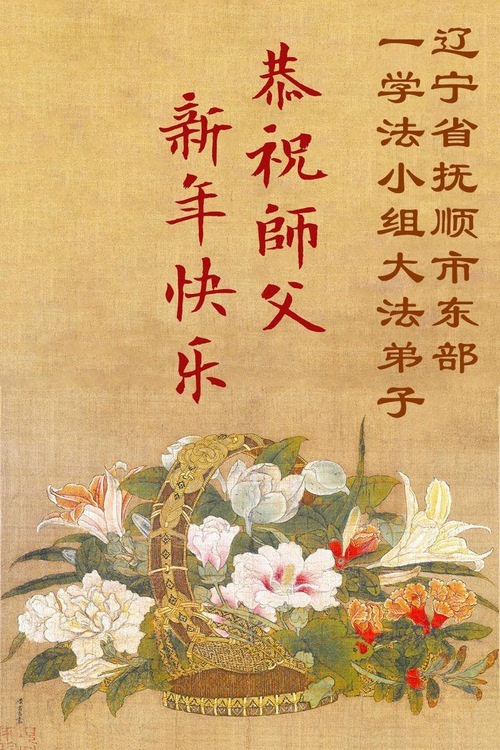 辽宁省抚顺市东部
一学法小组大法弟子
恭祝師父
新年快乐